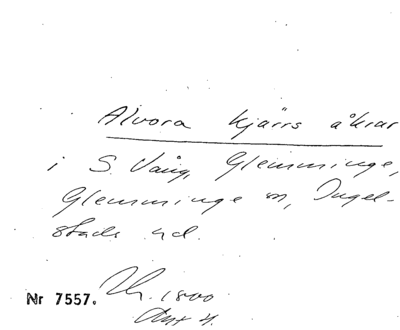 Alvora kjärrs åkrar
i S. Vång, Glemminge,
Glemminge sn, Ingel-
stads hd.
Nr 7557. 1800
Akt 4.